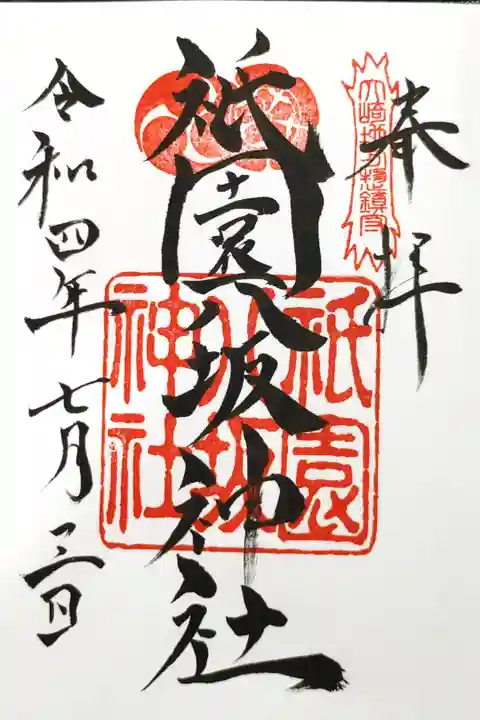 奉拝
大崎地方総鎮守
祇園八坂神社
祇園
八坂
神社
令和四年七月三日